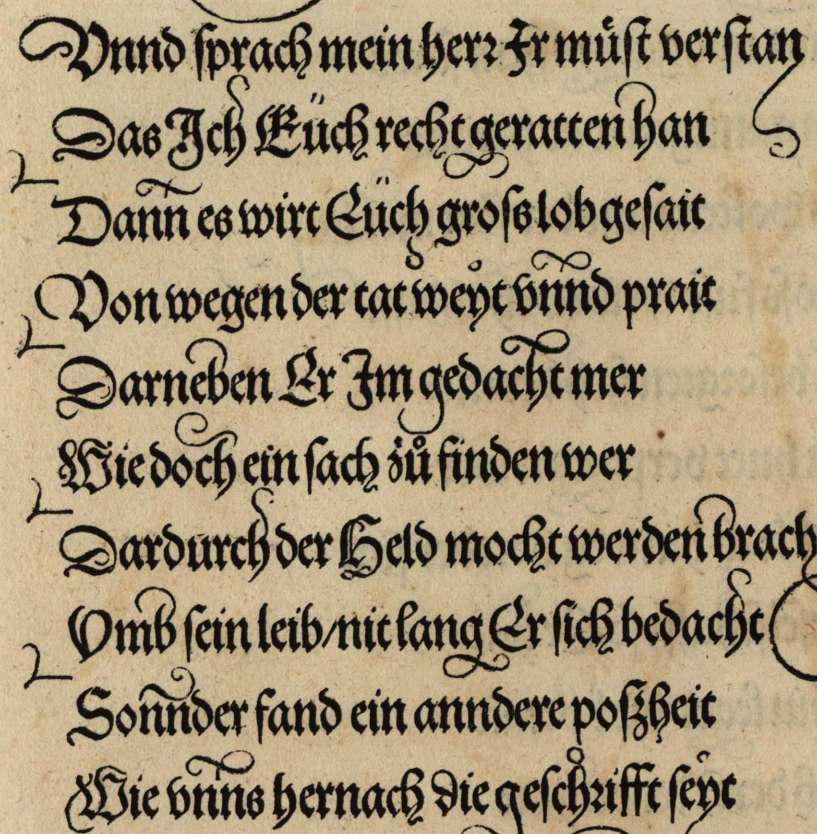 Vnnd sprach mein herr Ir müst verstan
Das Ich Eüch recht geratten han
Dann es wirt Eüch gross lob gesait
Von wegen der tat weyt vnnd prait
Darneben Er Im gedacht mer
Wie doch ein sach zů finden wer
Dardurch der Held mocht werden brach
Vmb sein leib/nit lang Er sich bedacht
Sonnder fand ein anndere poszheit
Wie vnns hernach die geschrifft seyt